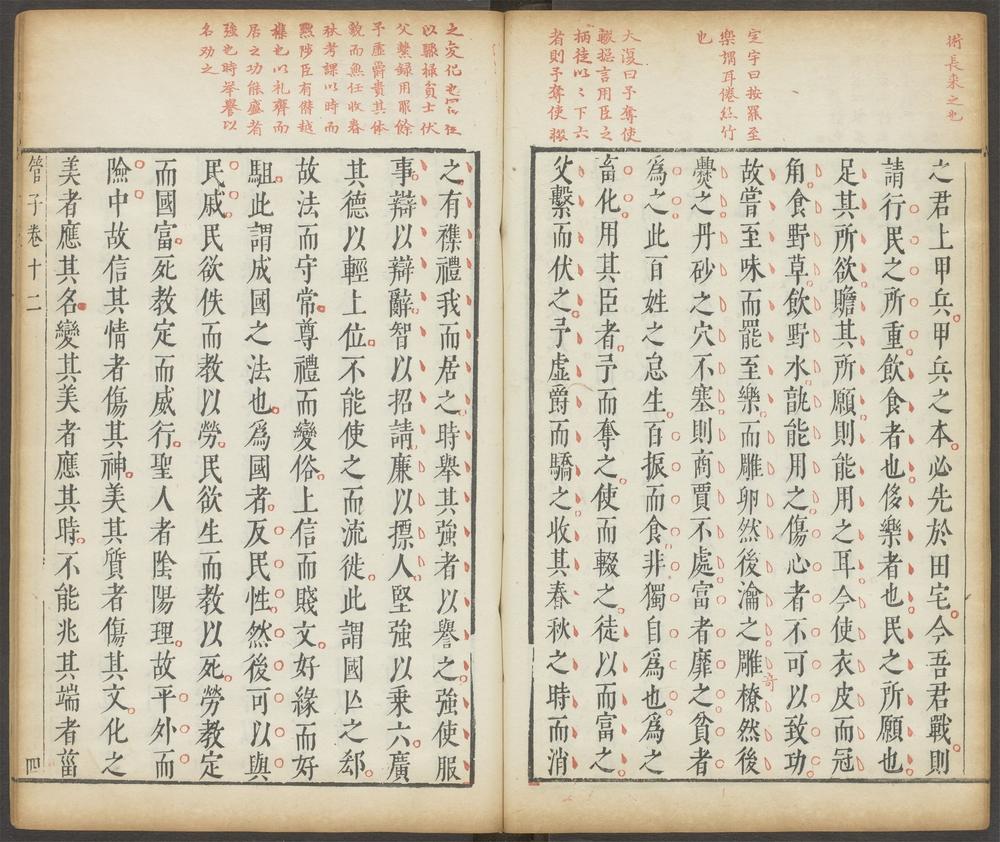 衔長來之也
定宇曰按罷至
樂謂耳倦絲竹
也
大復曰予奪使
輟揔言用臣之
柄徒以〻下六
者則予奪使輟
之君上甲兵甲兵之本必先於田宅今吾君戰則
請行民之所重飲食者也侈樂者也民之所願也
足其所欲贍其所願則能用之耳今使衣皮而冠
角食野草飲野水孰能用之傷心者不可以致功
故嘗至味而罷至樂而雕卵然後瀹之雕橑然後
奇
爨之丹砂之穴不塞則商賈不處富者靡之貧者
為之此百姓之怠生百振而食非獨自為也為之
畜化用其臣者予而奪之使而輟之徒以而富之
父繫而伏之予虛爵而驕之收其春秋之時而消
之变化也實位
以驟操貧士伏
父繫録用罪餘
予虛爵貴其体
貌而無任收春
秋考課以時而
黙陟臣有僭越
襍也以礼齊而
居之功能盛者
強也時举譽以
名劝之
之有襍禮我而居之時舉其強者以譽之強使服
事辯以辯辭智以招請廉以摽人堅強以乘六廣
其德以輕上位不能使之而流徙此謂國亡之郄
故法而守常尊禮而變俗上信而賤文好緣而好
駔此謂成國之法也為國者反民性然後可以與
民戚民欲佚而教以勞民欲生而教以死勞教定
而國富死教定而威行聖人者陰陽理故平外而
險中故信其情者傷其神美其質者傷其文化之
美者應其名變其美者應其時不能兆其端者菑
管子卷十二
四